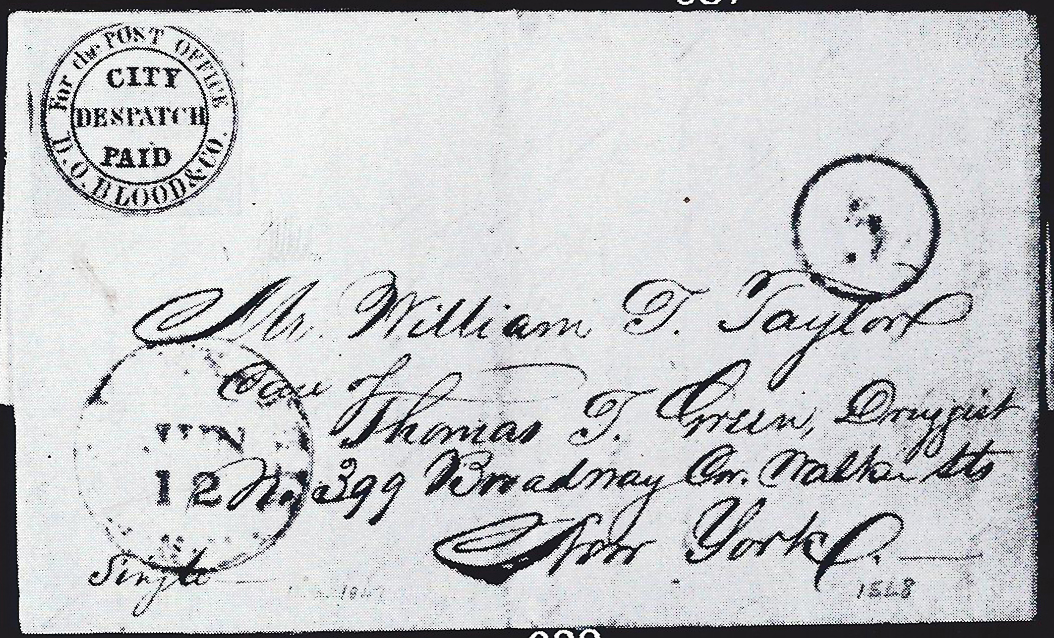 For the POST OFFICE
CITY
DESPATCH
PAID
D.O. BLOOD & CO.
Mr. William T. Taylor
Care of
Thomas T. Green, Druggist
No. 399 Broadway Cor. Walker Sts
New York C.
JUN
12
Single
1848